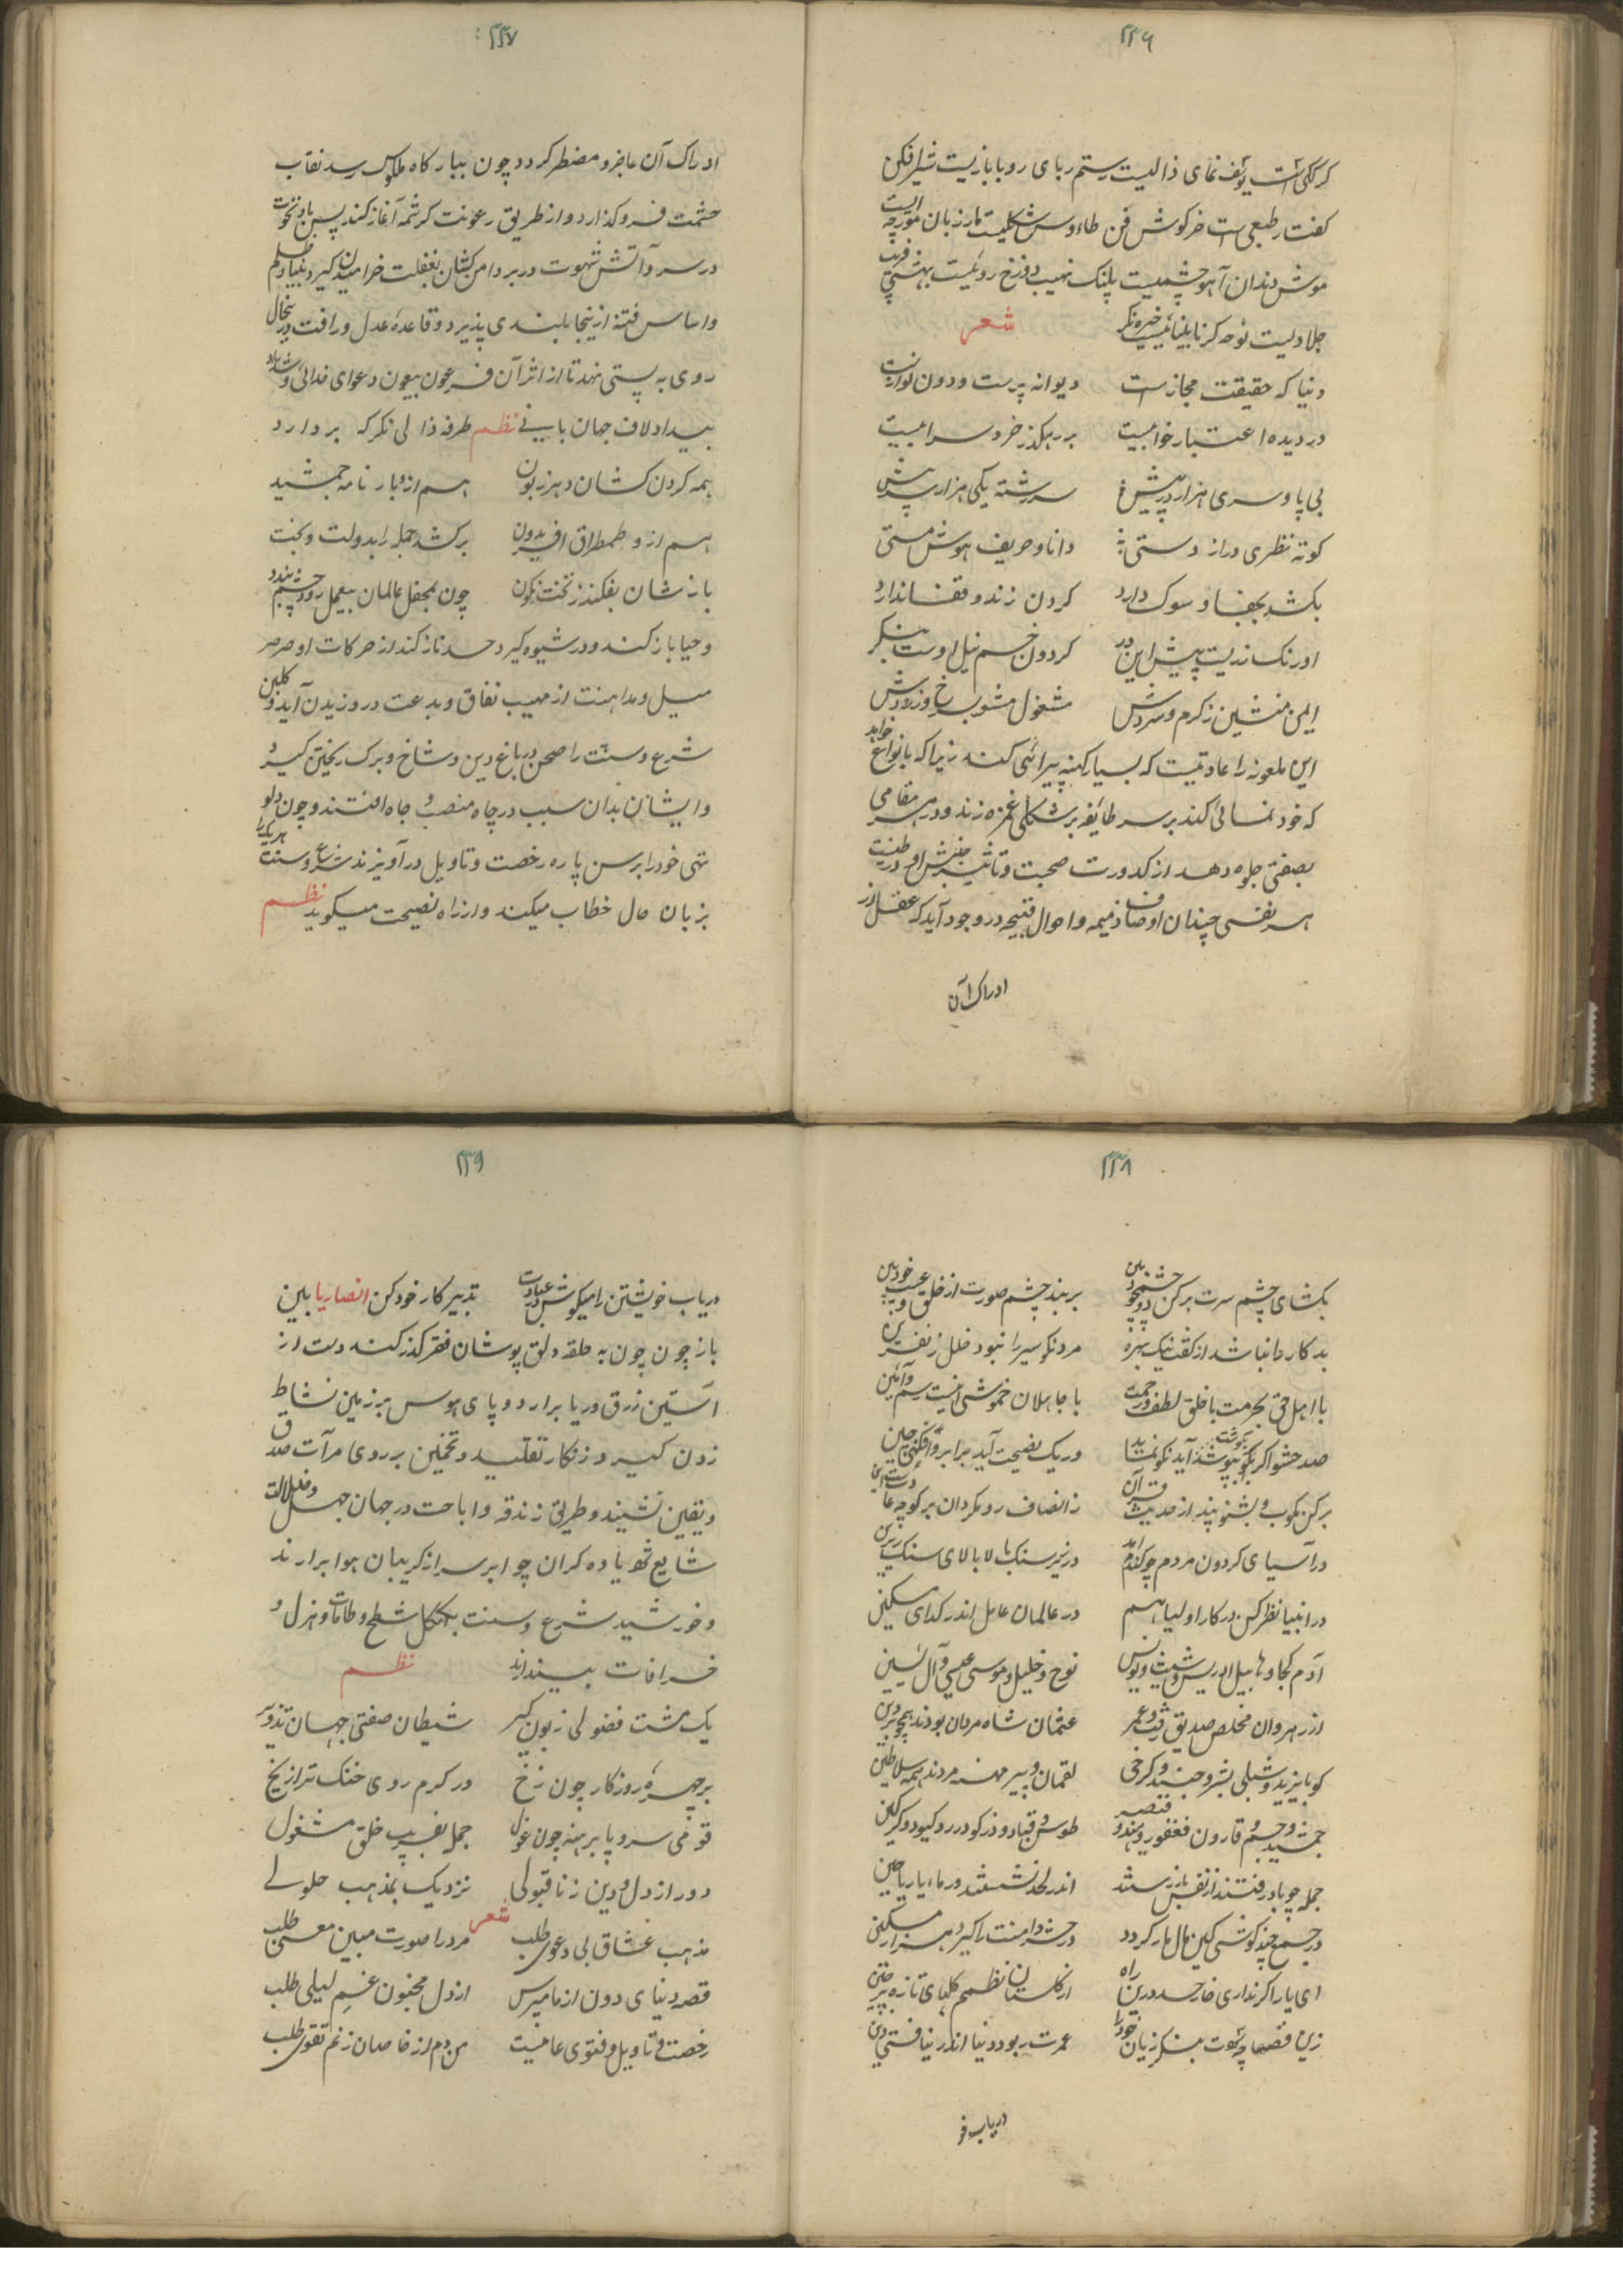 ۲۳۶
گرگی است یوسف نمای ذالیست رستم ربای روباه بازیست شیرافکن
کفتار طبعی است خرگوش فن طاءوس شکلیست مار زبان مورچه ایست
موش دندان آهو چشمیست پلنک نهیب دوزخ روئیست بهشتی فریب
جلادیست نوحه گر نابینائیست خیره نگر شعر
دنیا که حقیقت مجاز است دیوانه پرست و دون نواز است
در دیده اعتبار خوابیست بر رهگذر خرد سرابیست
بی پا و سری هزار در پیش سررشته یکی هزار سر پیش
کوته نظری دراز دستی دانا و حریف هوش مستی
بکشد بجفا و سوک دارد گردن زند و قفا ندارد
اورنک زریست پیش این در گردون خسم نیل اوست بنگر
ایمن منشین ز گرم و سردش مشغول مشو بسرخ و زردش
این ملعونه را عادتیست که بسیار کهنه پیرائی کند زیرا که بانواع خواهد
که خود نمائی کند بر سر طائفه بر شکلی غمزه زند و در هر مقامی
بصفتی جلوه دهد از کدورت صحبت و تاثیر جنبش او در طینت
هر نفسی چندان اوصاف ذمیمه و احوال قبیحه در وجود آید که عقل از
ادراک آن
۲۳۷
ادراک آن عاجز و مضطر گردد چون ببارگاه ملوک رسد نقاب
حشمت فرو گذارد و از طریق رعونت کرشمه آغاز کند پس باد نخوت
در سر و آتش شهوت در بر دامن کشان بغفلت خرامیدن گیرد بنیاد ظلم
و اساس فتنه ازینجا بلندی پذیرد و قاعده عدل و رافت در نیحال
روی به پستی نهد تا از اثر آن فرعون بیعون دعوای خدائی و شداد
بیداد لاف جهان بانی نظم طرفه ذالی نگر که بردارد
همه گردن کشان دهر زبون هم ازو بار نامه جمشید
هم ازو طمطراق افریدون برکشد جمله را بدولت و بخت
باز شان بفکند ز تخت نگون چون بمحفل عالمان بیعمل رود چشم بندد
و حیا باز کند و در شیوه گیرد حسد ناز کند از حرکات او صرصر
میل و مداهنت از مهیب نفاق و بدعت در وزیدن آید و گلبن
شرع و سنت را صحن در باغ دین و شاخ و برک ریختن گیرد
و ایشان بدان سبب در چاه منصب و جاه افتند و چون دلو
تهی خود را برسن پاره رخصت و تاویل در آویزند شرع و سنت هر یک را
بزبان حال خطاب میکند و از راه نصیحت میگوید نظم
۲۳۸
بکشای چشم سرت بر کن دو چشم خود بین بربند چشم صورت از خلق و عیب خود بین
بدکار دانا باشد از گفت نیک بهره مرد نکو سیر را نبود خلل ز نفرین
با اهل حق بحرمت با خلق لطف و رحمت با جاهلان خموشی اینست رسم و آئین
صد حشو اگر بگوشت آید نکو نماید ور یک نصیحت آید بر ابرو افکنی چین
برکن بکوب و بشنو پند از حدیث قرآن ز انصاف رو مگردان بر کوچه
در آسیای گردون مردم چو گندم آمد در زیر سنک بالا بالای سنک زیرین
در انبیا نظر کن در کار اولیا هم در عالمان عامل اندر گدای مسکین
آدم کجا و هابیل ادریس و شیث و یونس نوح و خلیل و موسی عیسی و آل یٰسین
از رهروان مخلص صدیق رفت و عمر عثمان شاه مردان بودند بیحد بر دین
کو بایزید و شبلی بشر و جنید و کرخی لقمان و پیر مهنه مردند همه سلاطین
جمشید و جم و قارون فغفور و هند و قیصر طوس و قباد و نوذر گودرز و گیو و گرگین
جمله چو باد رفتند از نفس باز رستند اندر لحد نشستند در ماء یا ریاحین
در جمع چند کوشی کین مال مار گردد در حشر دامنت را گیرد هزار مسکین
ای یار اگر نداری خار حسد درین راه از گلستان نظمم گلهای تازه بر چین
زین قصها چه سودت بنگر زیان خود را عمرت ربود دنیا اندر نیافتی دین
دریاب خو
۲۳۹
دریاب خویشتن را میکوش در عبادت تدبیر کار خود کن انصاریا ببین
باز چون چون به حلقه دلق پوشان فقر گذر کند دست از
آستین زرق و ریا برارد و پای هوس بر زمین نشاط
زدن گیرد زنکار تقلید و تخمین بر روی مرآت صدق
و یقین نشیند و طریق زندقه و اباحت در جهان جهل و ضلالت
شایع شود یاده گران چو ابر سر از گریبان هوا برارند
و خورشید شرع و سنت بکل شطح و طامات و هزل و
خرافات بیندایند نظم
یک مشت فضولی زبون گیر شیطان صفتی جهان تذویر
بر چهره روزگار چون زخ در گرم روی خنک تر از یخ
قومی سر و پا برهنه چون غول جمله بفریب خلق مشغول
دور از دل و دین ز ناقبولی نزدیک بمذهب حلولی
شعر
مذهب عشاق بی دعوی طلب مرد را صورت مبین معنی طلب
قصه دنیای دون از ما مپرس از دل مجنون غم لیلی طلب
رخصت و تاویل و فتوی عامیست من دم از خاصان زنم تقوی طلب